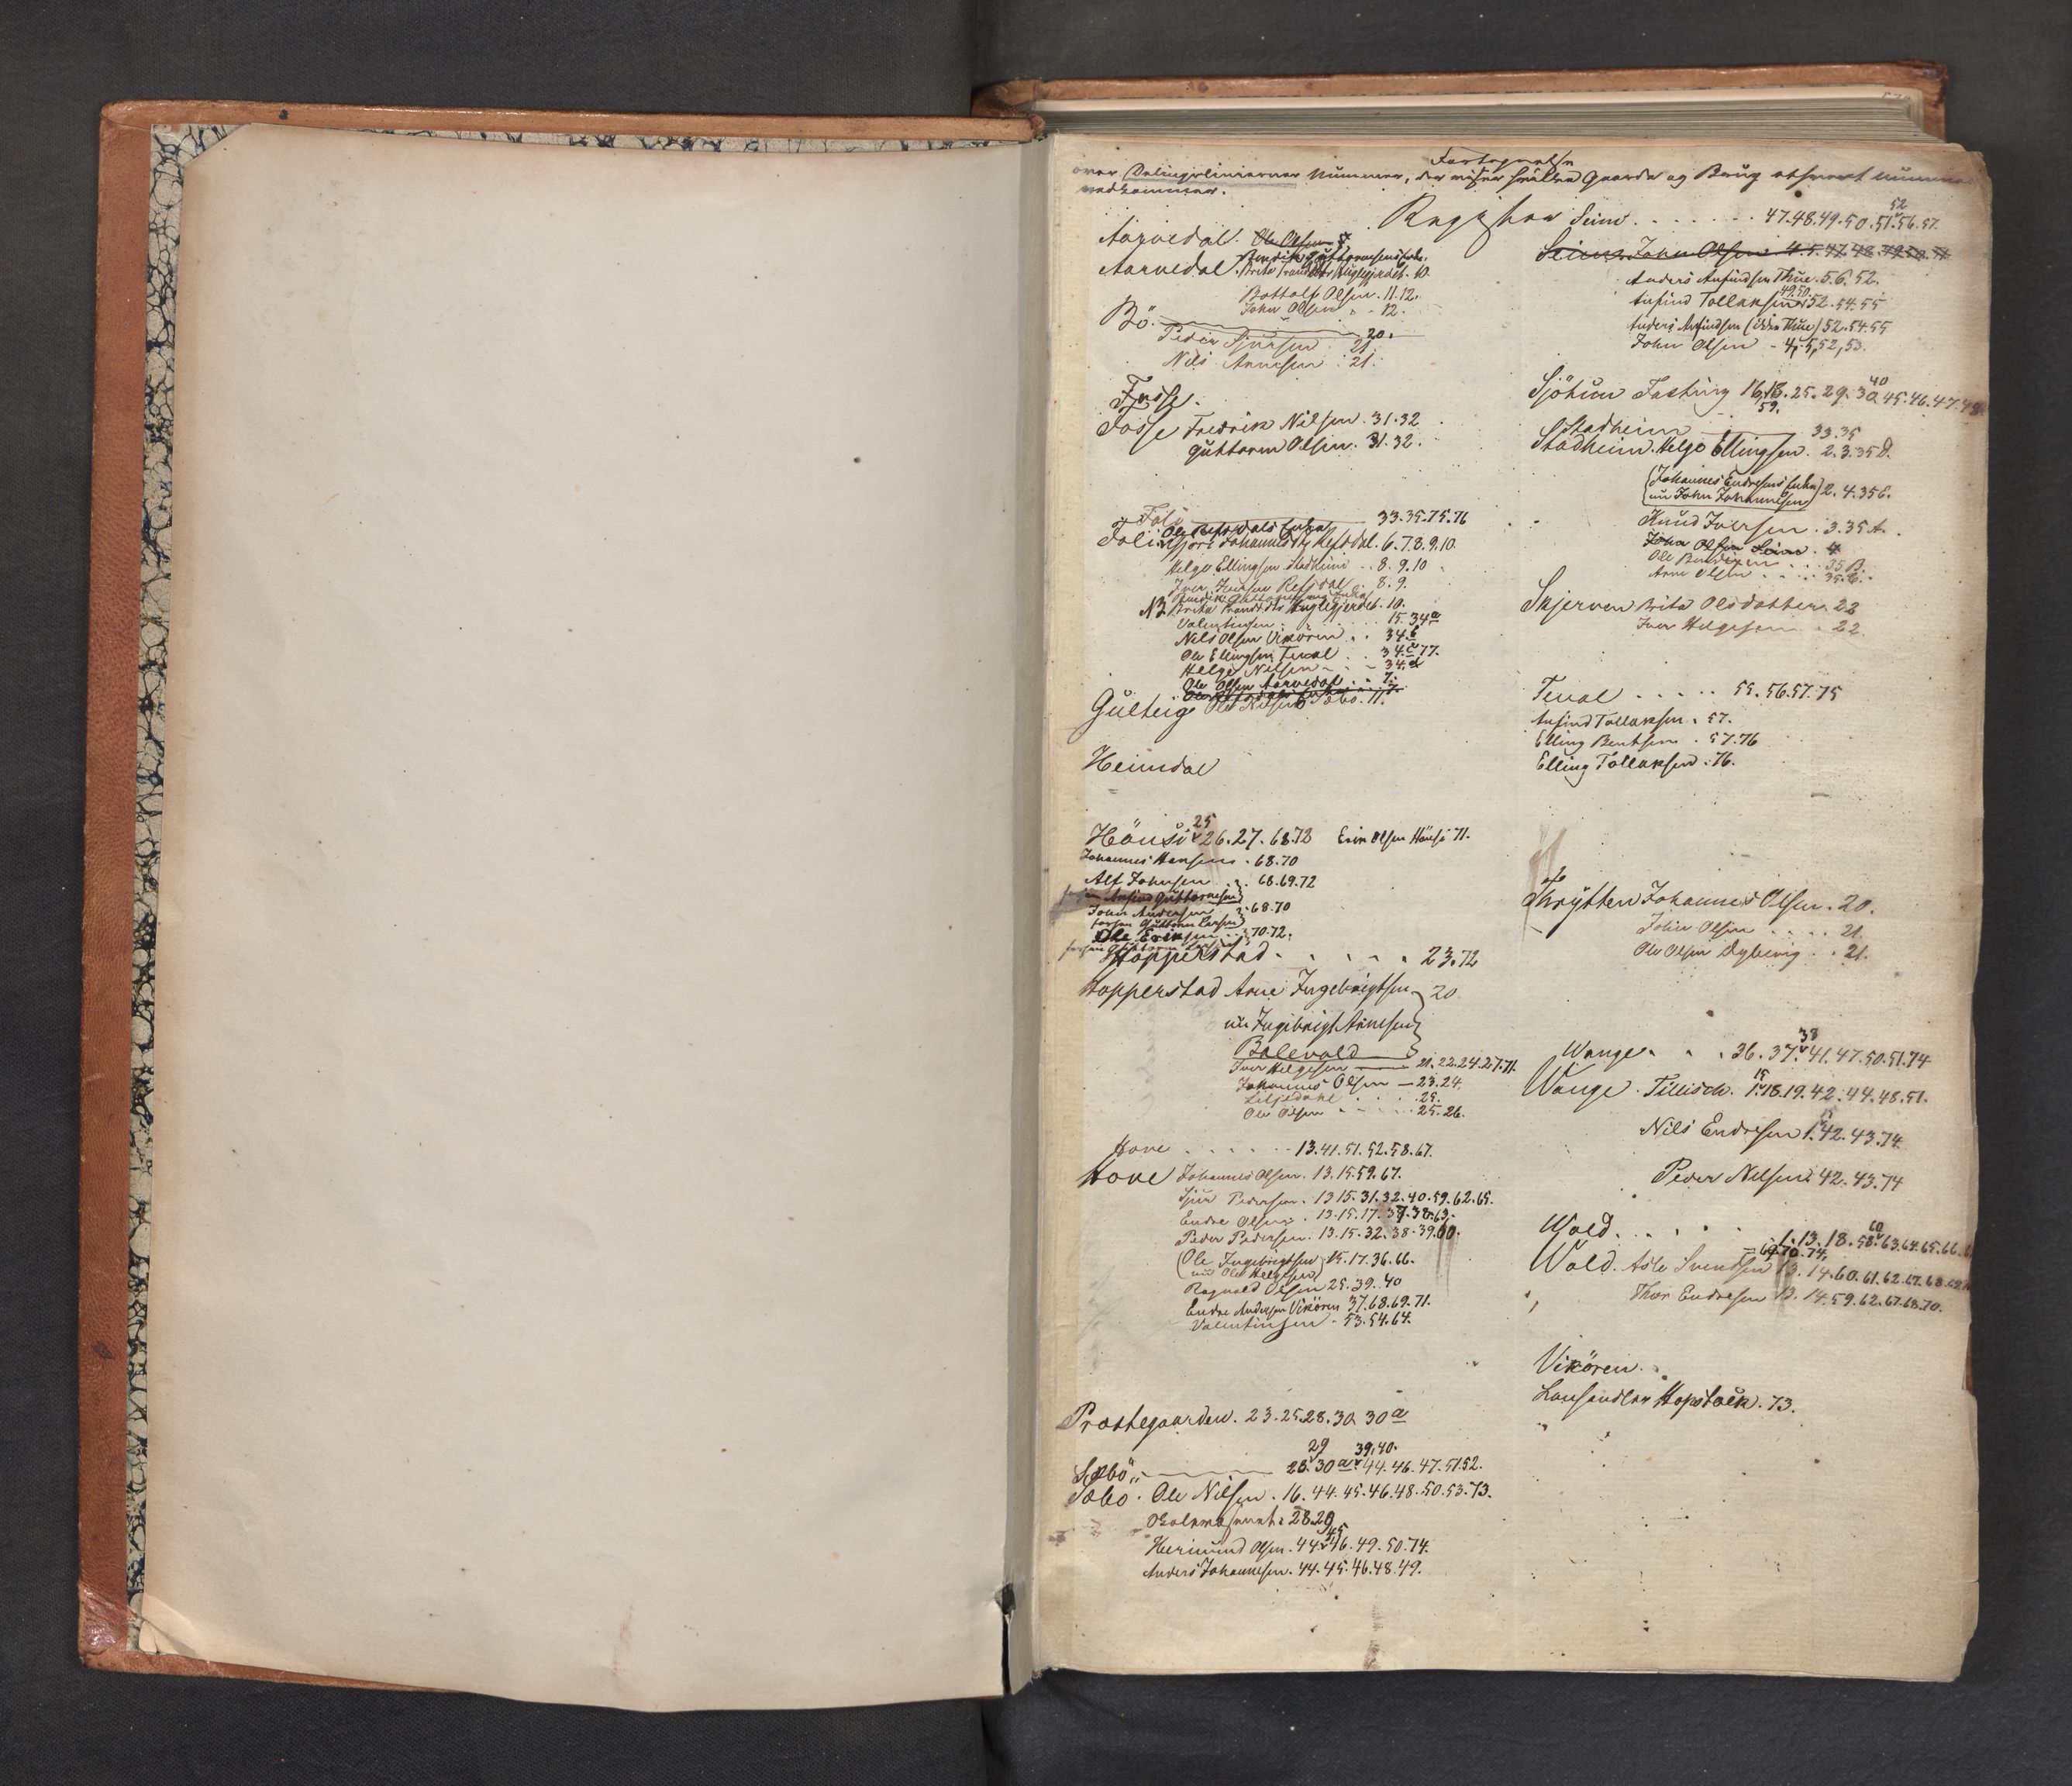 Fortegnelse
over Delingslinierner Nummer, der viser hvilke Gaarde og Brug ethvert nummer
vedkommer.
Register
Aarvedal. Ole Olsen
Aarvedal. Brita Huglegjerdet. 10.
Bottolf Olsen. 11.12.
John Olsen - - 12.
Bö. 20.
Peder Sjursen . 21.
Nils Arnesen . 21.
Fosse.
Fosse Fredrik Nilsen. 31.32
Guttorm Olsen. 31.32.
Foli 33.35.75.76
Foli Johannesdtr Refsdal. 6.7.8.9.10.
Helge Ellingsen Stadheim . . 8.9.10
Iver Iversen Refsdal . 8.9.
NB Brita Huglegjerdet. 10.
Valentinsen . 15.34a
Nils Olsen Vikören . . 34.b
Ole Ellingsen Tenal . . 34.c 77.
Helge Nilsen - - - 34.d
Ole Olsen Aarvedal . . 7.
Gulteig Ole Nilsen Sæbo. 11.
Heimdal
25
Hönsi 26.27.68.72 Erik Olsen Hönsi 71.
Johannes Hansen . 68.70
Alf Johnsen . . 68.69.72
Anfind Guttormsen
John Andersen . 68.70
Ole Eriksen . . 70.72.
Hopperstad . . . . . 23.72
Hopperstad Arne Ingebrigtsen 20
nu Ingebrigt Arnesen
Bolevold
Iver Helgesen 21.22.24.27.71.
Johannes Olsen — 23.24.
Liljedahl . . . . 25.
Ole Olsen - - - - 25.26.
Hove . . . . . . 13.41.51.52.58.67.
Hove Johannes Olsen. 13.15.59.67.
Sjur Pedersen. 13 15.31.32.40.59.62.65.
Endre Olsen . 13.15.17.37.38.63.
Peder Pedersen. 13.15.32.38.39.60.
(Ole Ingebrigtsen 15.17.36.66.
nu Ole Helgesen)
Ragnvald Olsen 25.39.40
Endre Andersen Vikören 37.68.69.71.
Valentinsen - 53.54.64.
Præstegaarden. 23.25.28.30 30a
29 39.40.
Sæbö 26.30a.44.46.47.51.52.
Sæbo. Ole Nilsen. 16.44.45.46.48.50.53.73.
28.29
45
Hermund Olsen. 44.46.49.50.74.
Anders Johannesen. 44.45.46.48.49.
52
Seim. . . . . . . 47.48.49.50.51.56.57.
Seim John Olsen 4.5.47.48.49.50.51
Anders Anfindsen Thue. 5.6.52.
49.50.
Anfind Tollaksen 52.54.55
Anders Anfindsen (Thue) 52.54.55
John Olsen - 4,5,52,53.
40
Sjötun Fasting 16.18.25.29.30 45.46.47.48
59.
Stadheim 33.35
Stadheim. Helge Ellingsen. 2.3.35 D.
(Johannes Endresens Enke) 2.4.35 E.
nu John Johannesen
Knud Iversen . 3.35 A.
John Olsen Seim . 4
Ole Bendixen . . . 35 B.
Arne Olsen . . . . 35.C.
Skjerven Brita Olsdotter. 22
Iver Helgesen . 22.
Tenal . . . . . 55.56.57.75
Anfind Tollaksen . 57.
Elling Bentsen . 57.76
Elling Tollaksen . 76.
Thrytten Johannes Olsen. 20.
John Olsen . . . . 21.
Ole Olsen Dybevig . . 21.
38
Wange. . . 36.37.41.47.50.51.74
15
Wange. Tillisch. 1.18.19.42.44.48.51.
Nils Endresen 1.42.43.74.
Peder Nilsen. 42.43.74
60
Wold. . . . 1.13.18.58.63.64.65.66.
69.70.74.
Wold. Asle Svendsen 13.14.60.61.62.67.68.69.
Thor Endresen 13.14.59.62.67.68.70.
Vikören.
Lensmand Hopstock. 73.